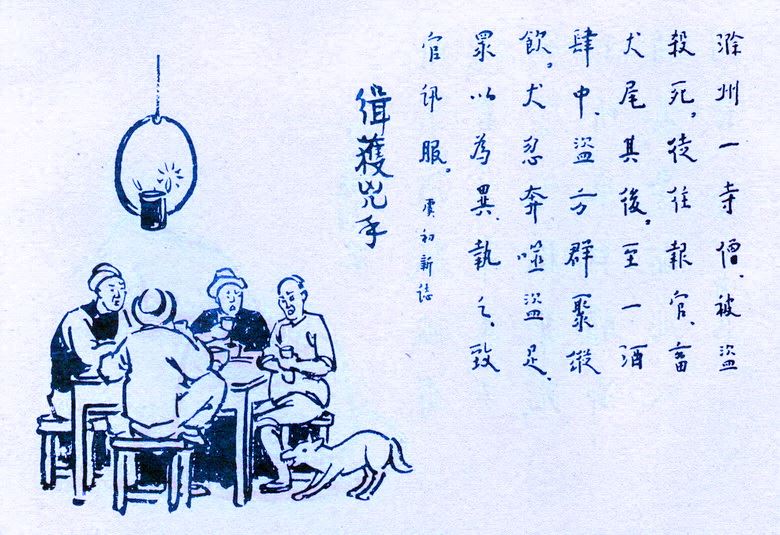 滁州一寺僧、被盜
殺死。徒往報官、畜
犬尾其後。至一酒
肆中、盜方群聚縱
飲。犬忽奔噬盜足、
眾以為異、執之。致
官訊服。 虞初新誌
緝獲兇手